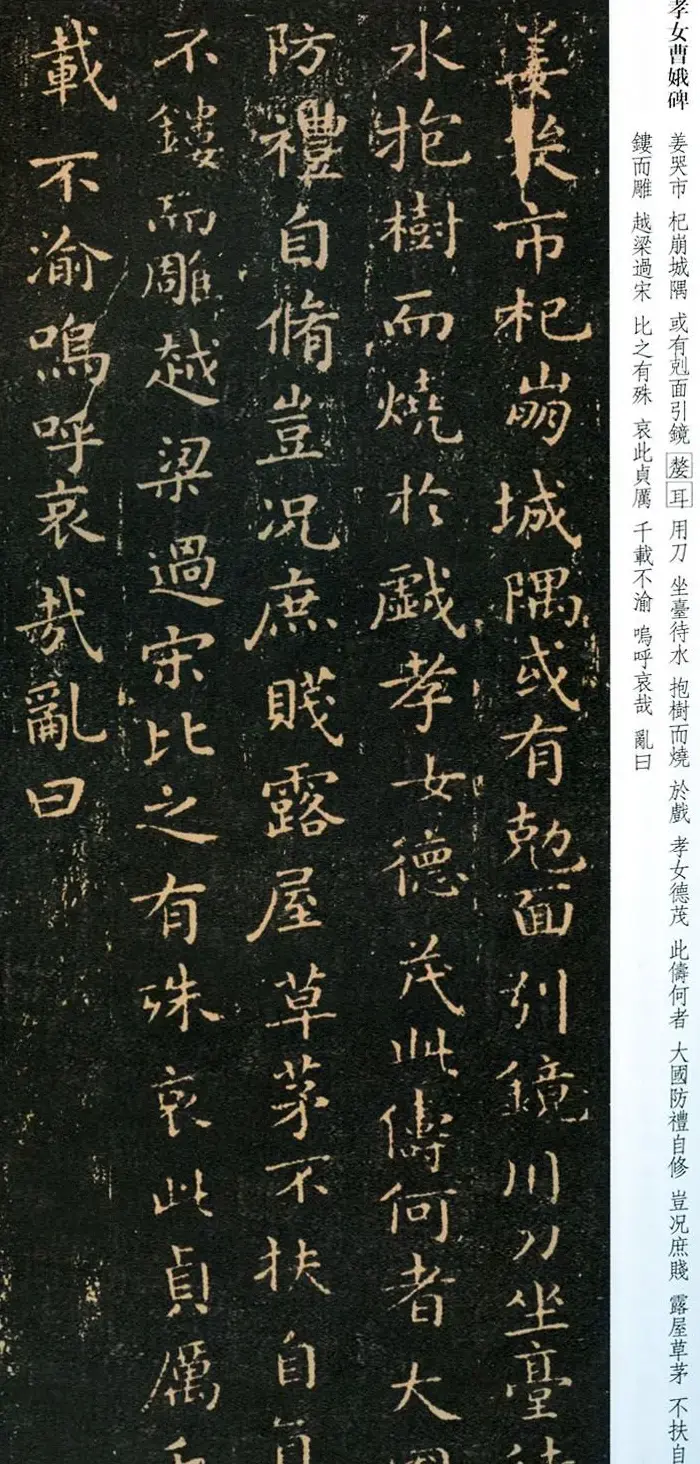 孝女曹娥碑
姜哭市 杞崩城隅 或有剋面引鏡 嫠耳 用刀 坐臺待水 抱樹而燒 於戲 孝女德茂 此儔何者 大國防禮自修 豈況庶賤 露屋草茅 不扶自
鏤而雕 越梁過宋 比之有殊 哀此貞厲 千載不渝 嗚呼哀哉 亂曰
姜哭市杞崩城隅或有勊面引鏡川刀坐臺待
水抱樹而燒於戲孝女德茂此儔何者大國
防禮自脩豈況庶賤露屋草茅不扶自直
不鏤而雕越梁過宋比之有殊哀此貞厲千
載不渝嗚呼哀哉亂曰